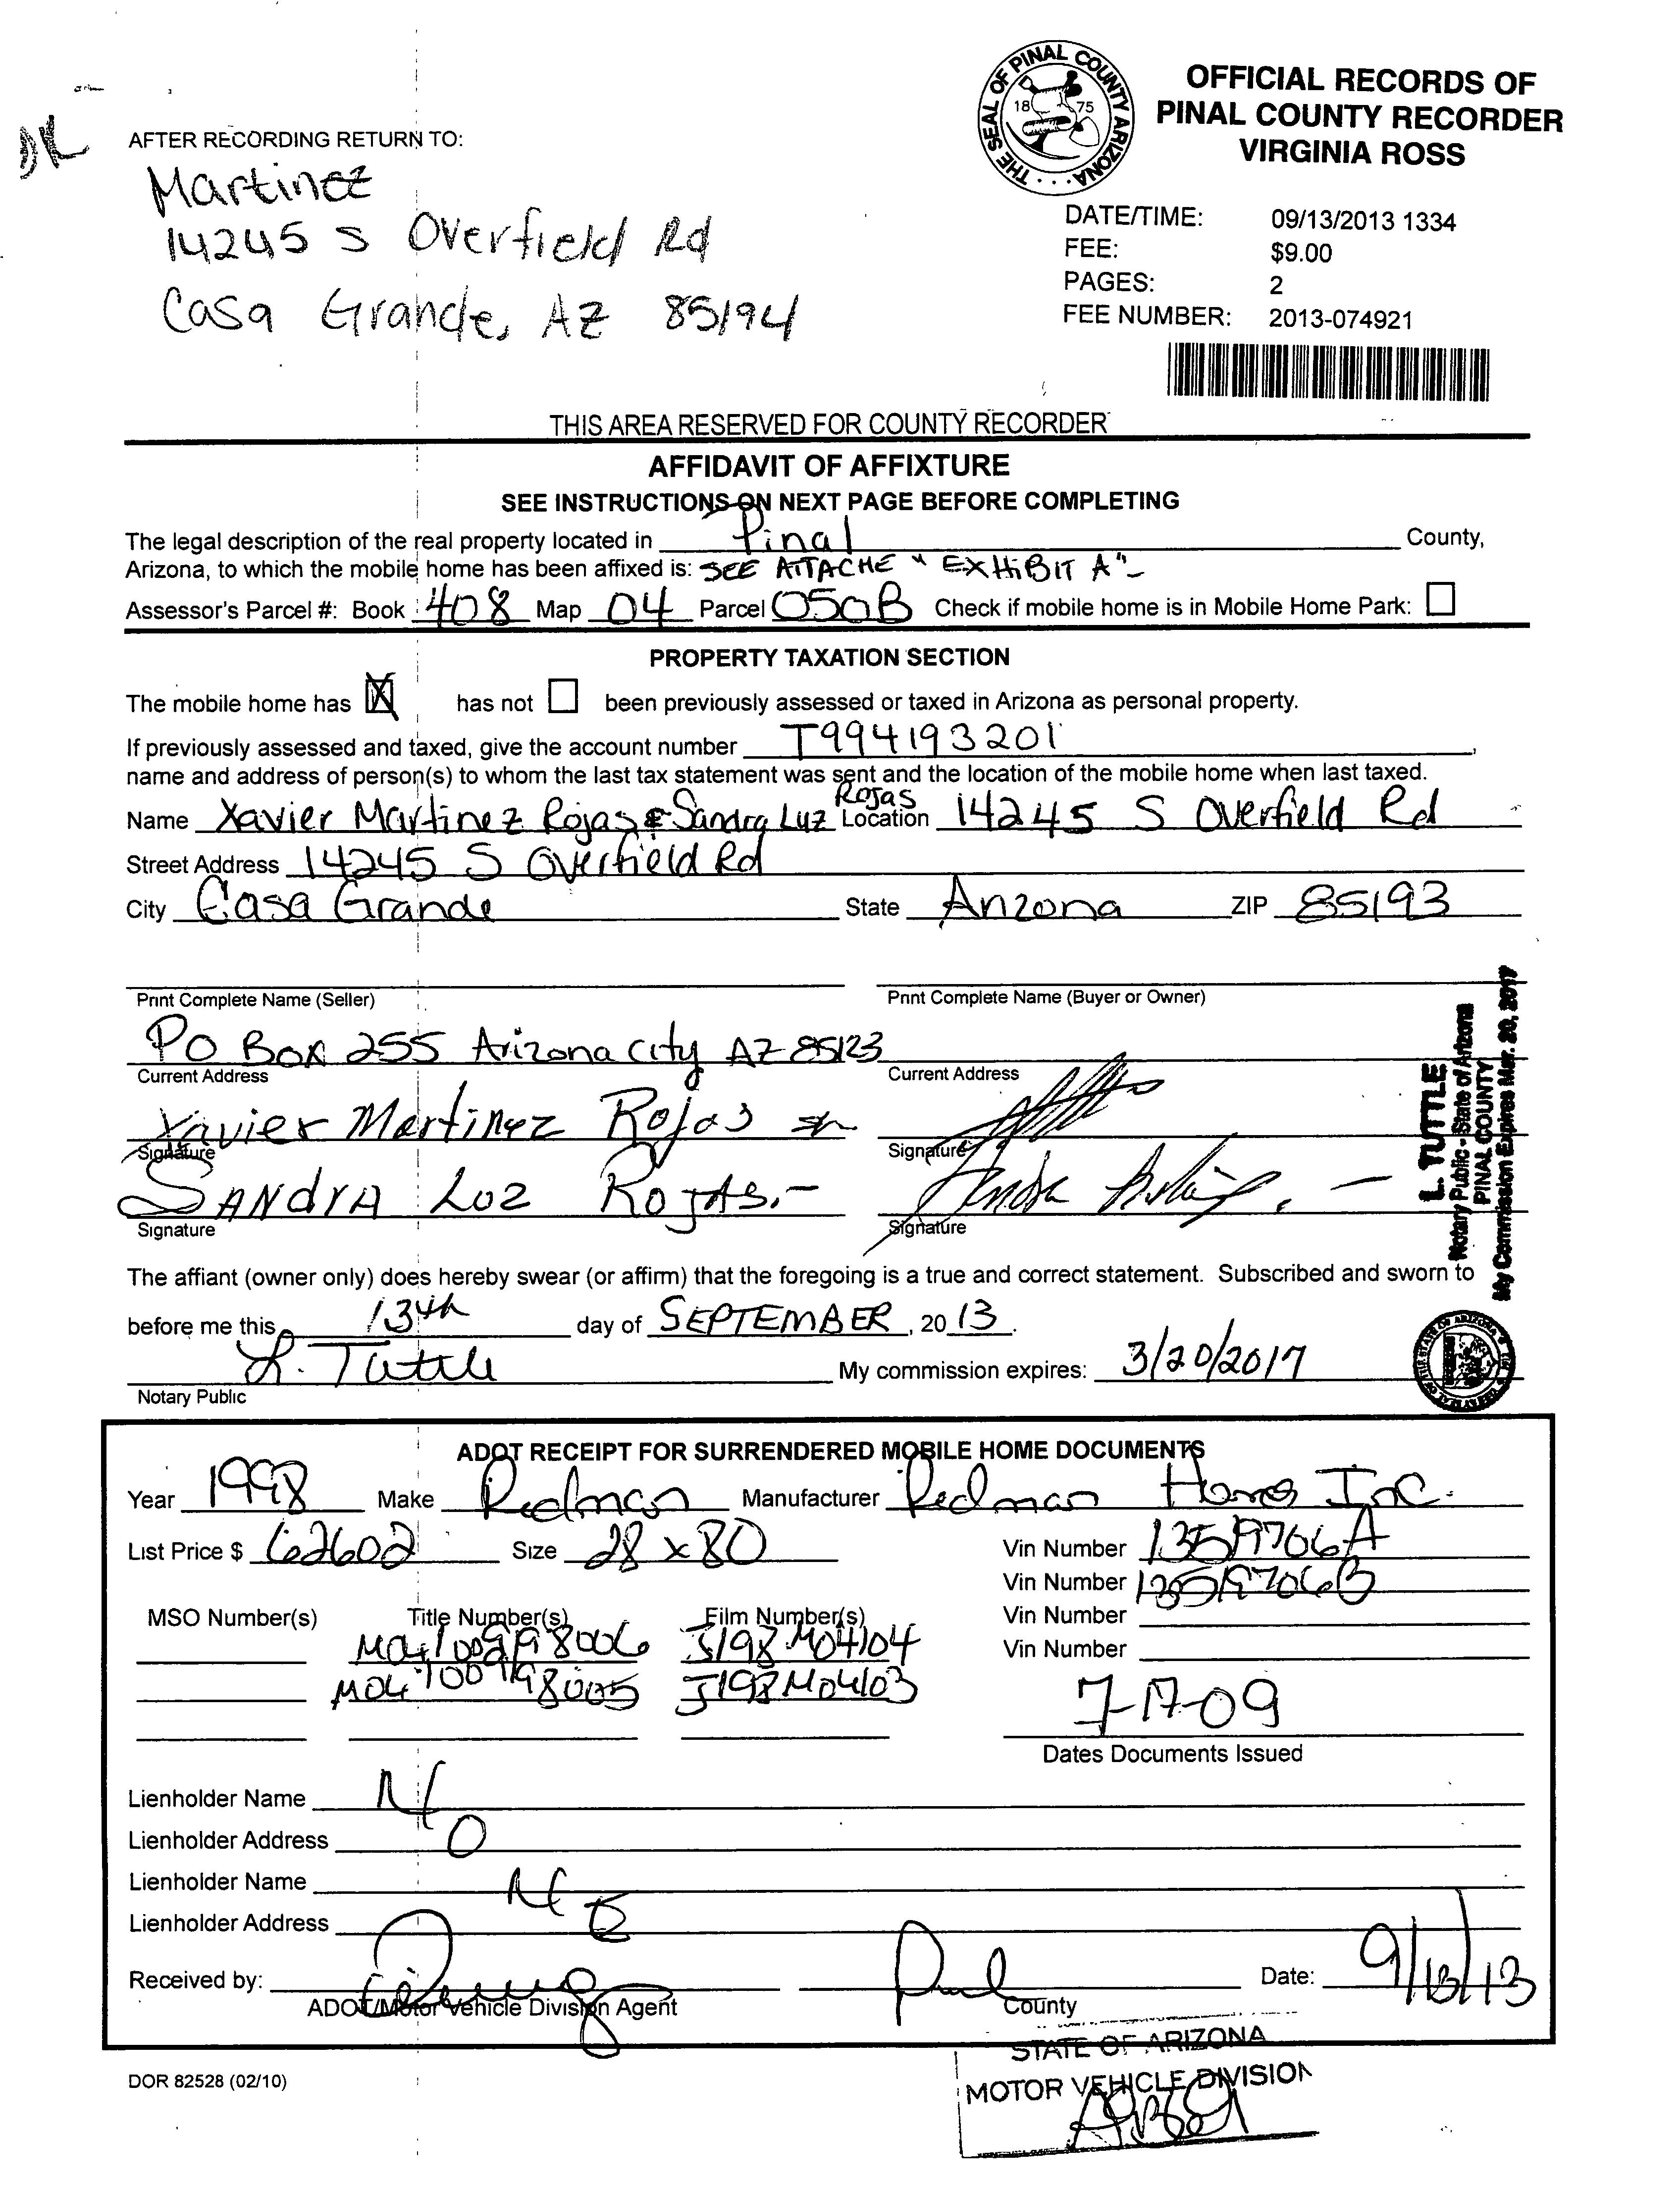 DL
AFTER RECORDING RETURN TO:
Martinez
14245 S Overfield Rd
Casa Grande, AZ 85194
THE SEAL OF PINAL COUNTY ARIZONA
1875
OFFICIAL RECORDS OF
PINAL COUNTY RECORDER
VIRGINIA ROSS
DATE/TIME: 09/13/2013 1334
FEE: $9.00
PAGES: 2
FEE NUMBER: 2013-074921
THIS AREA RESERVED FOR COUNTY RECORDER
AFFIDAVIT OF AFFIXTURE
SEE INSTRUCTIONS ON NEXT PAGE BEFORE COMPLETING
The legal description of the real property located in Pinal County,
Arizona, to which the mobile home has been affixed is: SEE ATTACHE "EXHiBIT A"-
Assessor's Parcel #: Book 408 Map 04 Parcel 050B Check if mobile home is in Mobile Home Park:
PROPERTY TAXATION SECTION
The mobile home has X has not been previously assessed or taxed in Arizona as personal property.
If previously assessed and taxed, give the account number T994193201,
name and address of person(s) to whom the last tax statement was sent and the location of the mobile home when last taxed.
Name Xavier Martinez Rojas & Sandra Luz Rojas Location 14245 S Overfield Rd
Street Address 14245 S Overfield Rd
City Casa Grande State Arizona ZIP 85193
Print Complete Name (Seller) Print Complete Name (Buyer or Owner)
PO Box 255 Arizona City AZ 85123
Current Address Current Address
Xavier Martinez Rojas
Signature Signature
SANdRA Luz RoJAS.-
Signature Signature
L. TUTTLE
Notary Public - State of Arizona
PINAL COUNTY
My Commission Expires Mar. 20, 2017
The affiant (owner only) does hereby swear (or affirm) that the foregoing is a true and correct statement. Subscribed and sworn to
before me this 13th day of SEPTEMBER, 20 13.
L. Tuttle My commission expires: 3/20/2017
Notary Public
ADOT RECEIPT FOR SURRENDERED MOBILE HOME DOCUMENTS
Year 1998 Make Redman Manufacturer Redman Homes Inc.
List Price $ 62602 Size 28 x 80 Vin Number 13519706A
Vin Number 13519706B
MSO Number(s) Title Number(s) Film Number(s) Vin Number
J198M04104 Vin Number
J198M04103
7-17-09
Dates Documents Issued
Lienholder Name N
Lienholder Address O
Lienholder Name N
Lienholder Address E
Received by: Pinal Date: 9/13/13
ADOT/Motor Vehicle Division Agent County
STATE OF ARIZONA
MOTOR VEHICLE DIVISION
DOR 82528 (02/10)